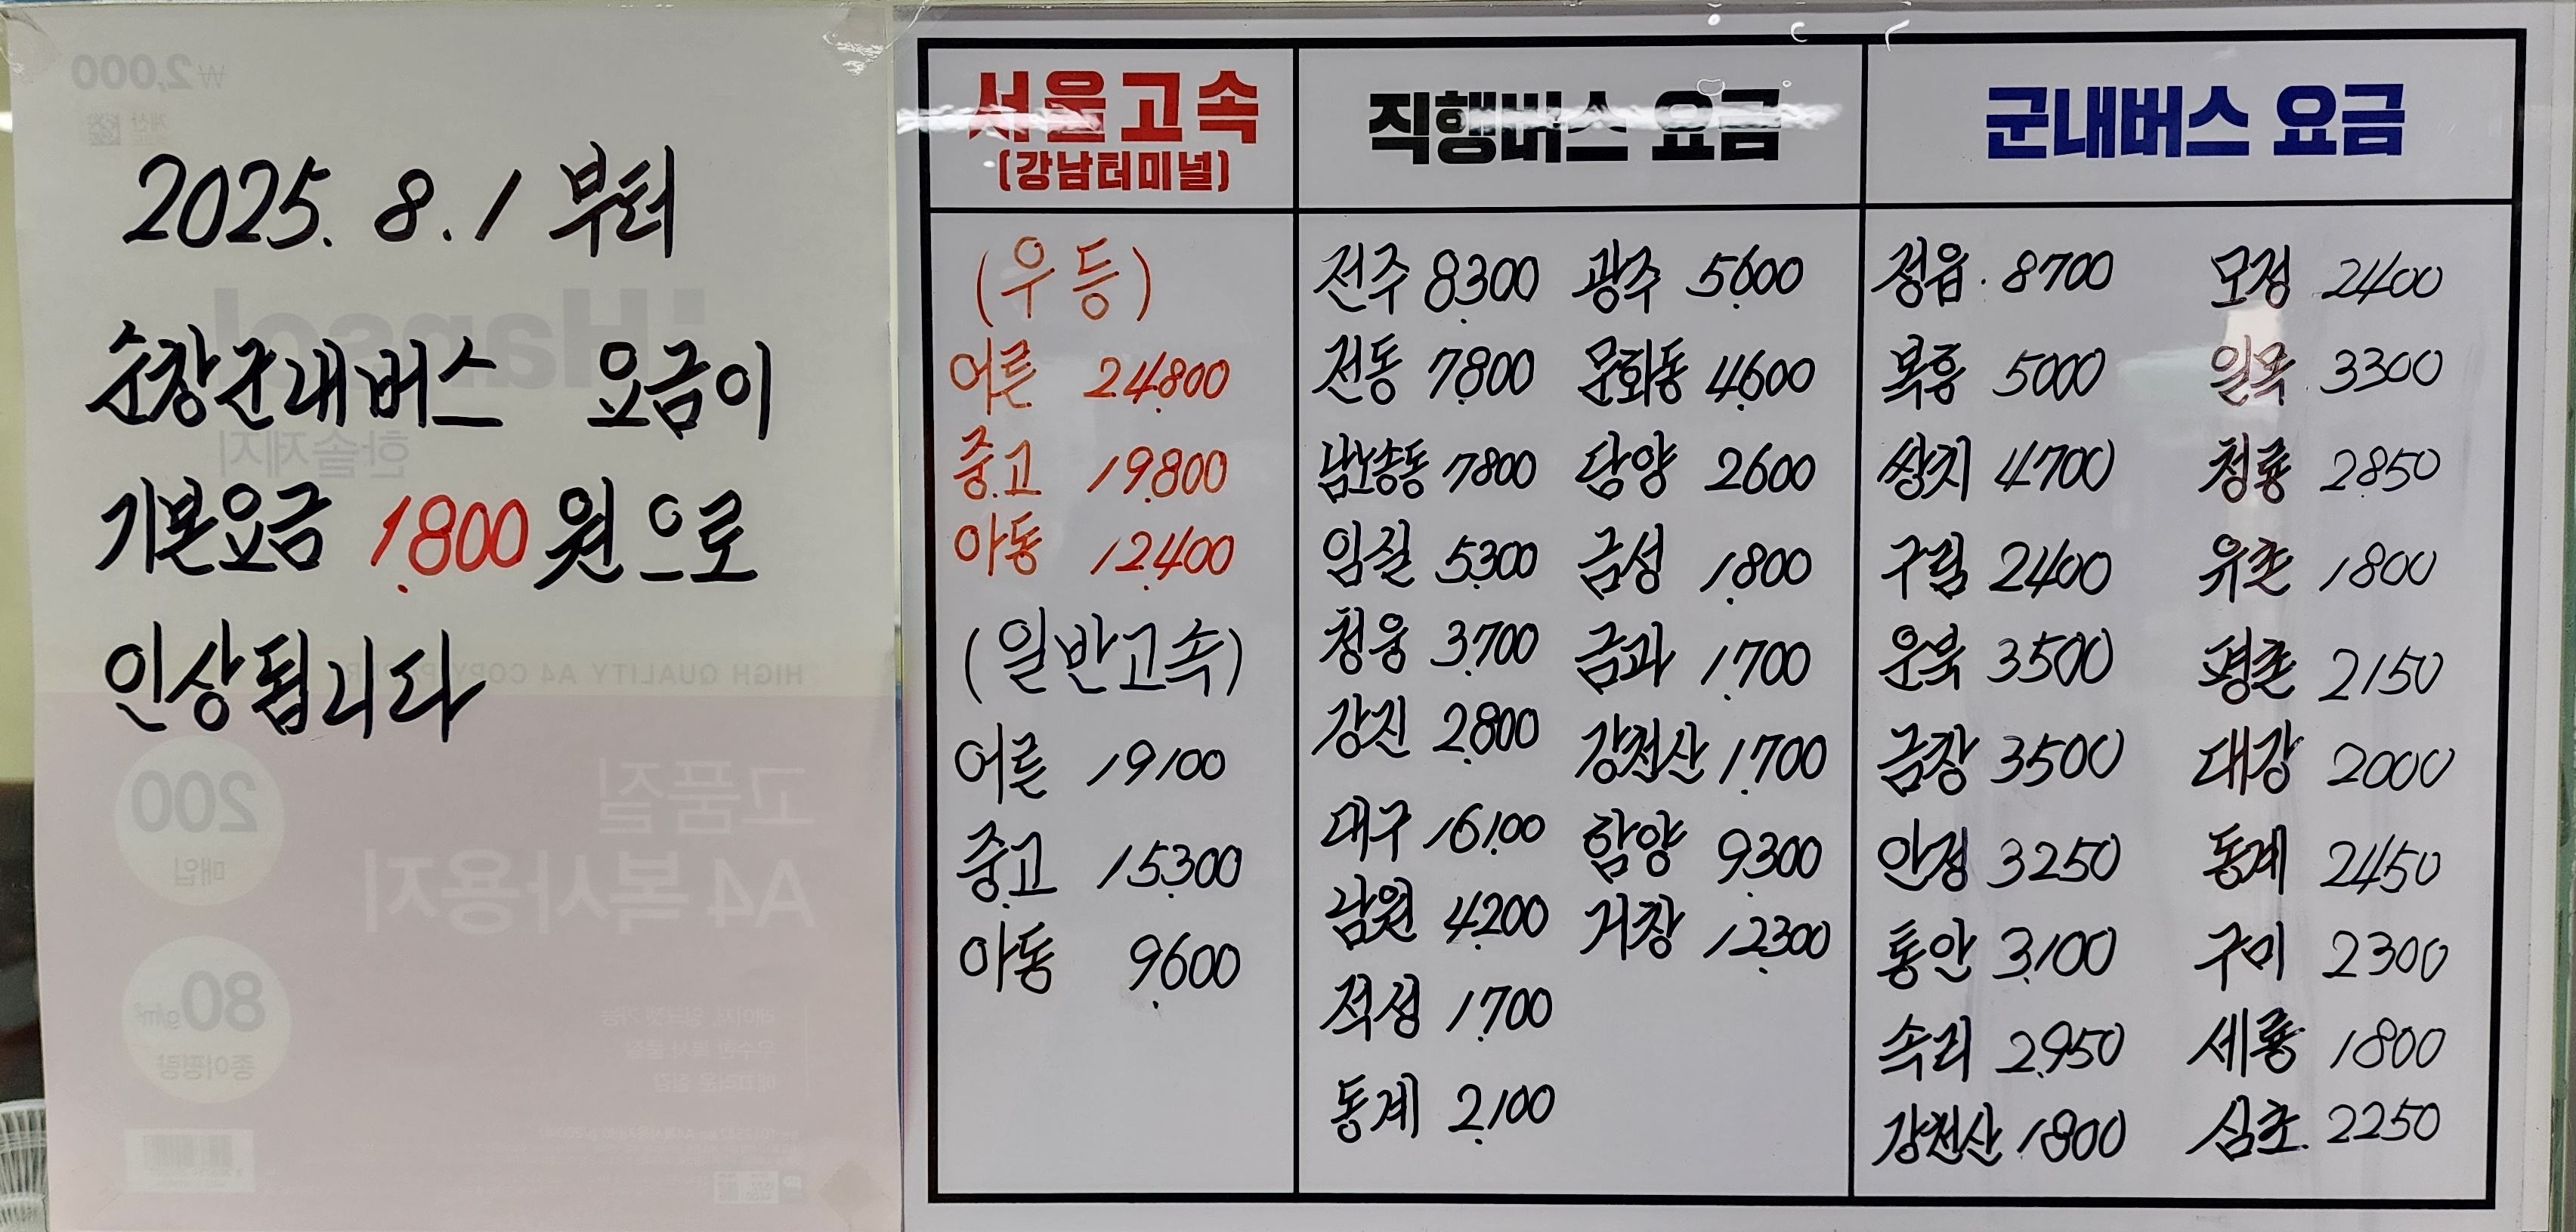 2025. 8. 1 부터
순창군내버스 요금이
기본요금 1,800원으로
인상됩니다
서울고속
(강남터미널)
(우등)
어른 24,800
중.고 19,800
아동 12,400
(일반고속)
어른 19,100
중.고 15,300
아동 9,600
직행버스 요금
전주 8,300 광주 5,600
전동 7,800 문화동 4,600
남노송동 7,800 담양 2,600
임실 5,300 금성 1,800
청웅 3,700 금과 1,700
강진 2,800 강천산 1,700
대구 16,100 함양 9,300
남원 4,200 거창 12,300
적성 1,700
동계 2,100
군내버스 요금
정읍 . 8700 모정 2400
복흥 5000 일목 3300
쌍치 4700 청룡 2850
구림 2400 유촌 1800
운북 3500 평촌 2150
금창 3500 대강 2000
안정 3250 동계 2450
통안 3,100 구미 2300
속리 2,950 세룡 1800
강천산 1800 심초. 2250
₩2,000
Hansol
한솔제지
HIGH QUALITY A4 COPY PAPER
200
매입
고품질
A4 복사용지
80g/m²
종이평량